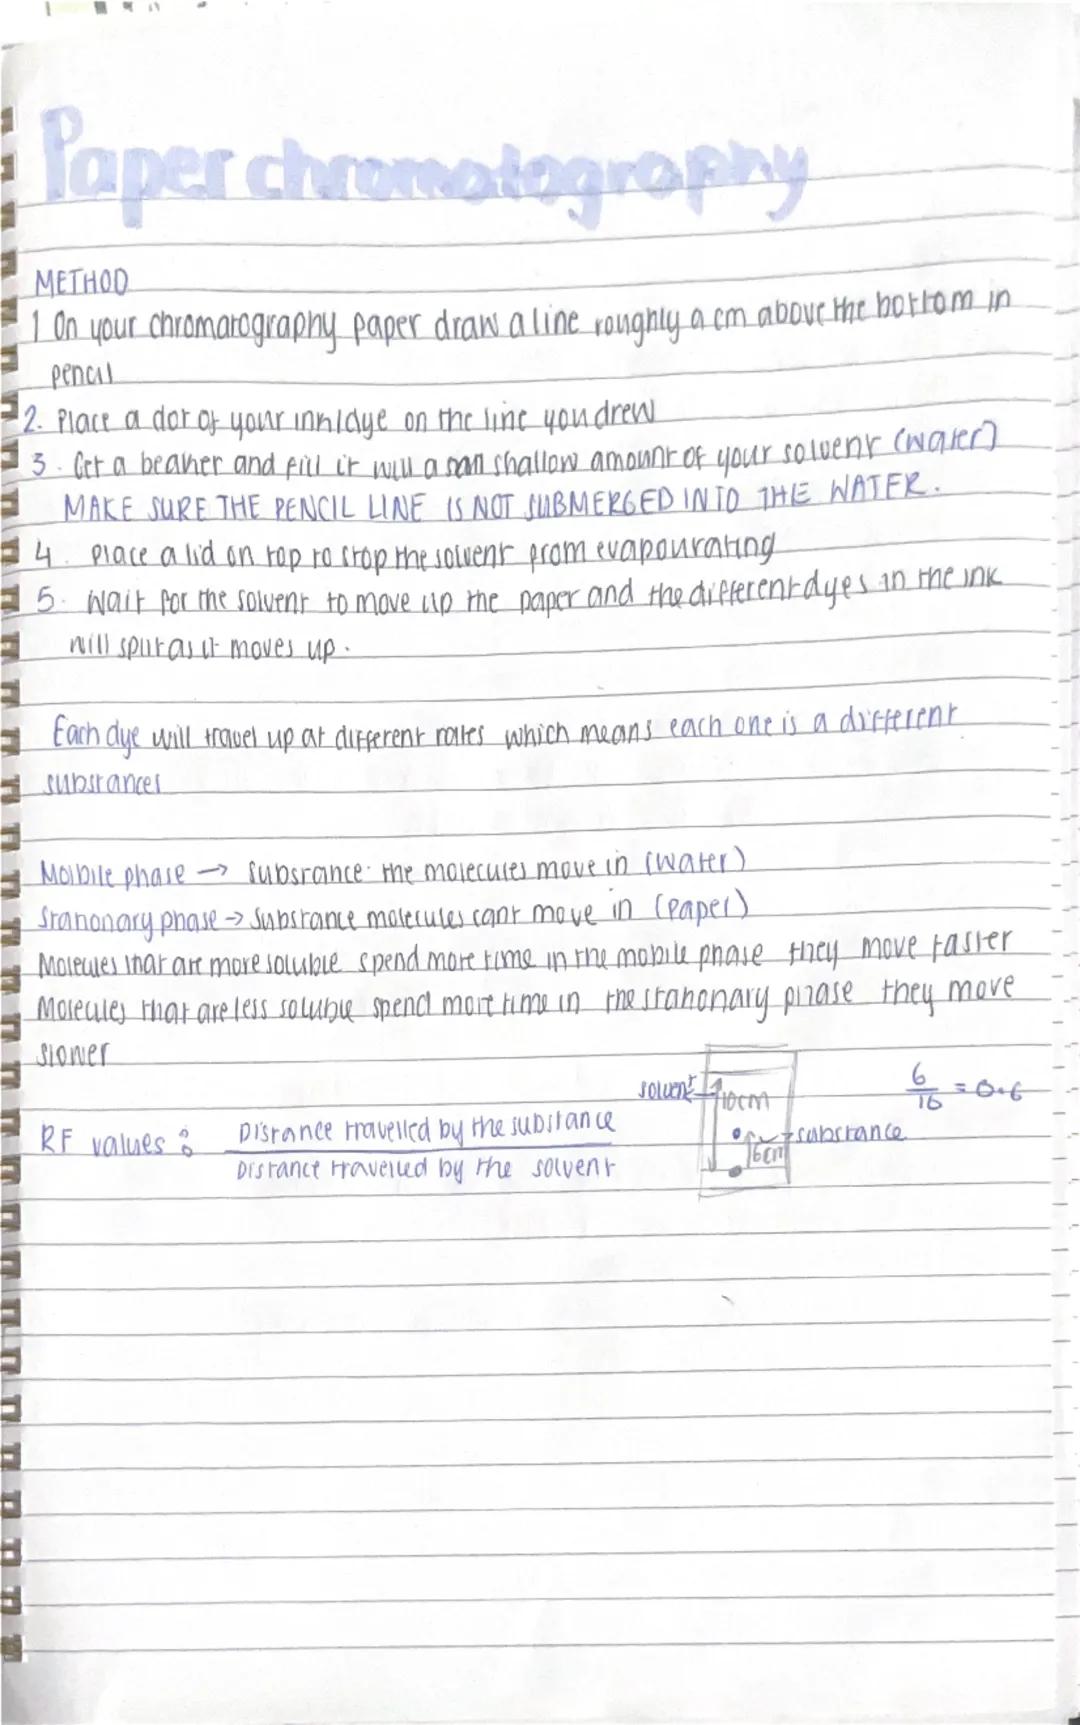 Paper chromatography
METHOD
1 On your chromatography paper draw a line roughly a cm above the bottom in
pencil
2. Place a dot of your ink/dye on the line you drew
3. Get a beaker and fill it with a shallow amount of your solvent (water)
MAKE SURE THE PENCIL LINE IS NOT SUBMERGED INTO THE WATER.
4. Place a lid on top to stop the solvent from evapourating
5. Wait for the solvent to move up the paper and the different dyes in the ink
will split as it moves up.
Each dye will travel up at different rates which means each one is a different
substances
Moibile phase → Substance the molecules move in (water)
Stationary phase → Substance molecules cant move in (Paper)
Molecules that are more soluble spend more time in the mobile phase they move faster
Molecules that are less soluble spend more time in the stationary phase they move
slower
solvent 10cm
6/10 = 0.6
RF values : Distance travelled by the substance
Distance travelled by the solvent
6cm substance